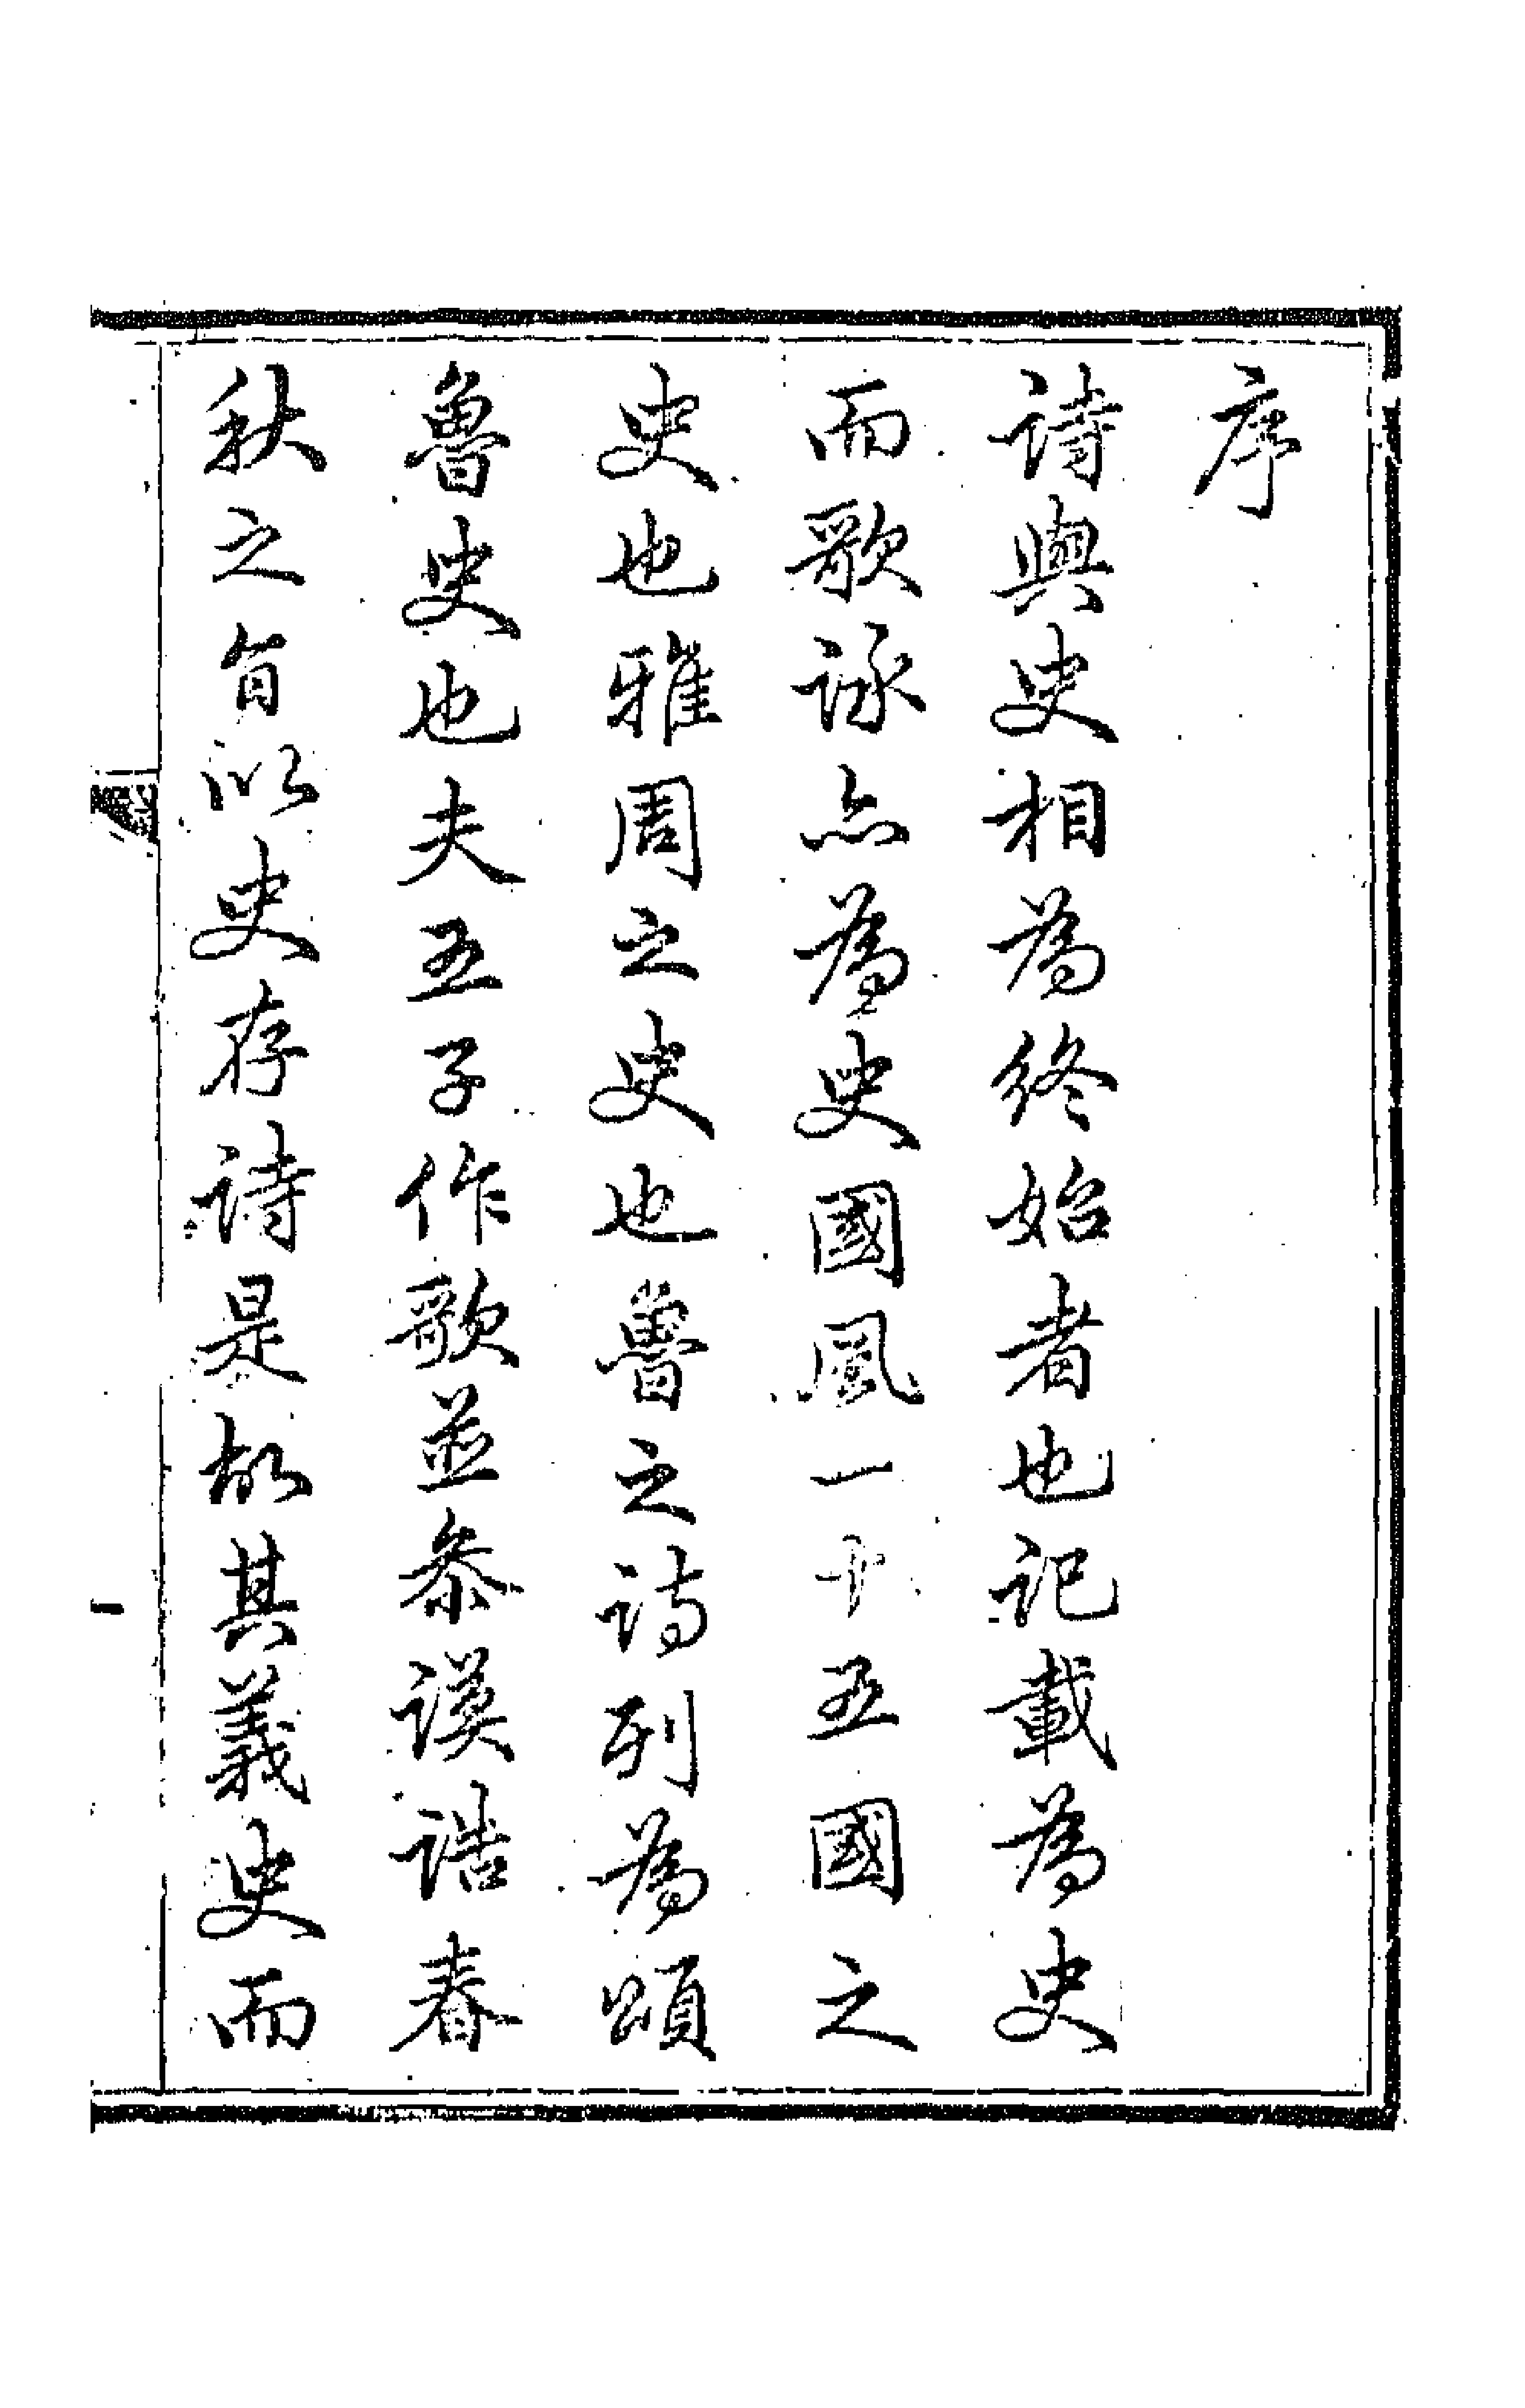 序
詩與史相為終始者也記載為史
而歌詠亦為史國風一十五國之
史也雅周之史也魯之詩列為頌
魯史也夫五子作歌並參謨誥春
秋之旨以史存詩是故其義史而